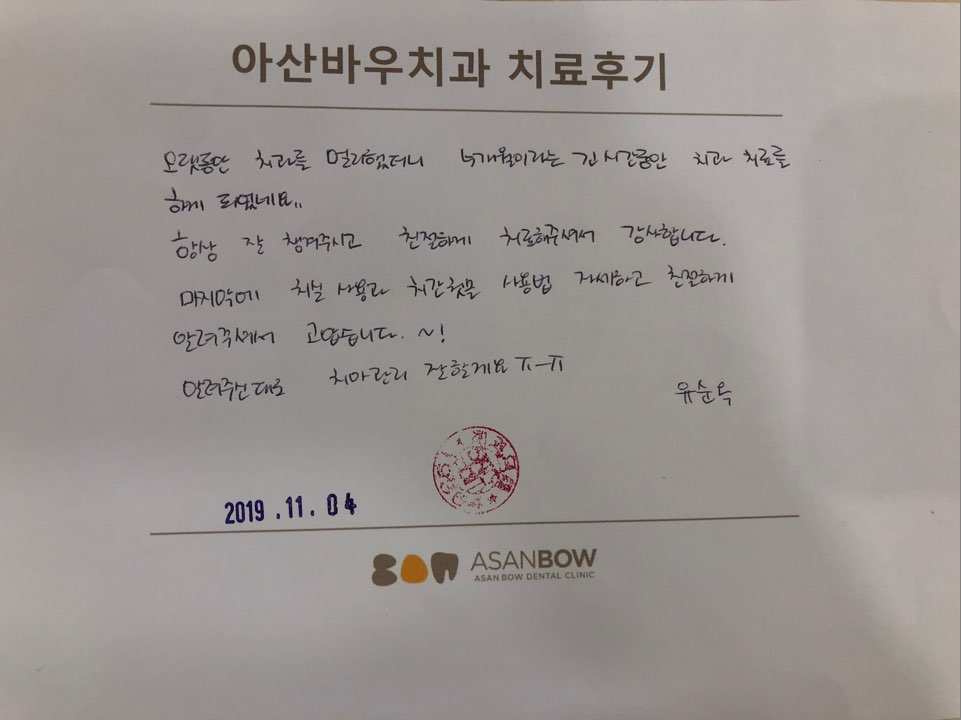 아산바우치과 치료후기
오랫동안 치과를 멀리했더니 5개월이라는 긴 시간동안 치과 치료를
하게 되었네요..
항상 잘 챙겨주시고 친절하게 치료해주셔서 감사합니다.
마지막에 치실 사용과 치간칫솔 사용법 자세하고 친절하게
알려주셔서 고맙습니다. ~!
알려주신대로 치아관리 잘할게요 ㅠ-ㅠ
유순옥
2019.11.04
ASANBOW
ASAN BOW DENTAL CLINIC